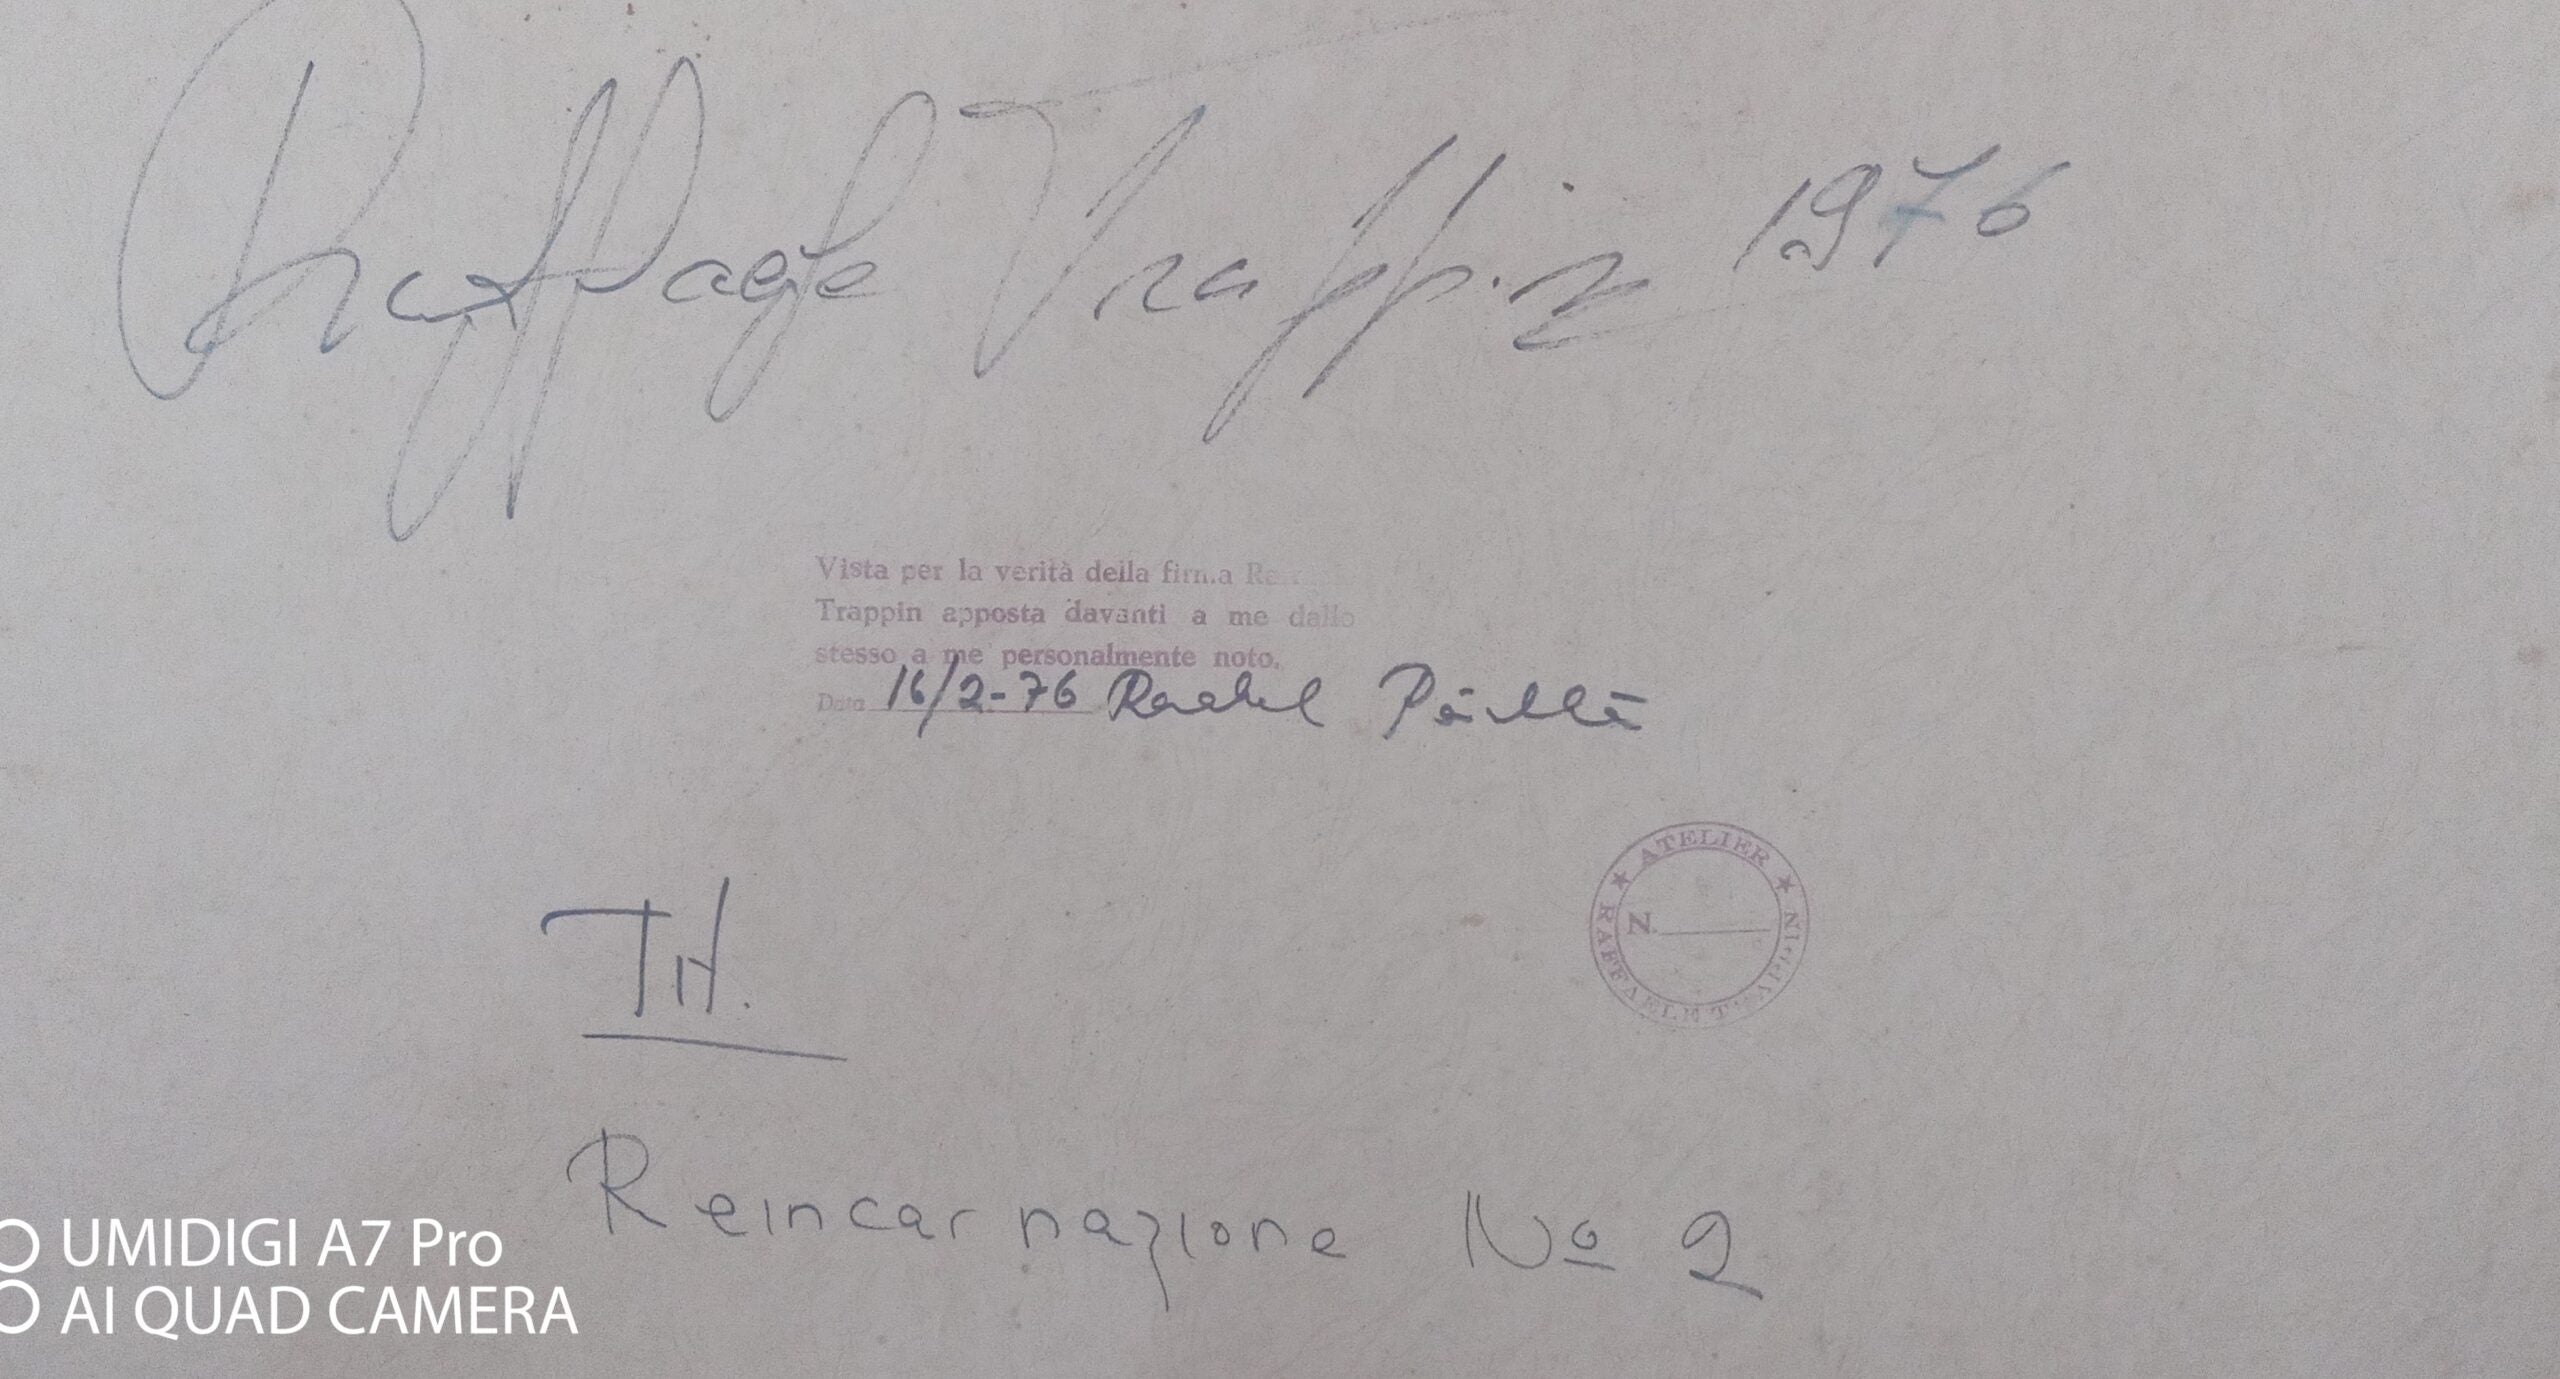 Raffaele Trappin 1976
Vista per la verità della firma
Trappin apposta davanti a me dallo
stesso a me personalmente noto.
Data 16/2-76
TH.
ATELIER
RAFFAELE TRAPPIN
N.
Reincarnazione Nº 2
UMIDIGI A7 Pro
AI QUAD CAMERA